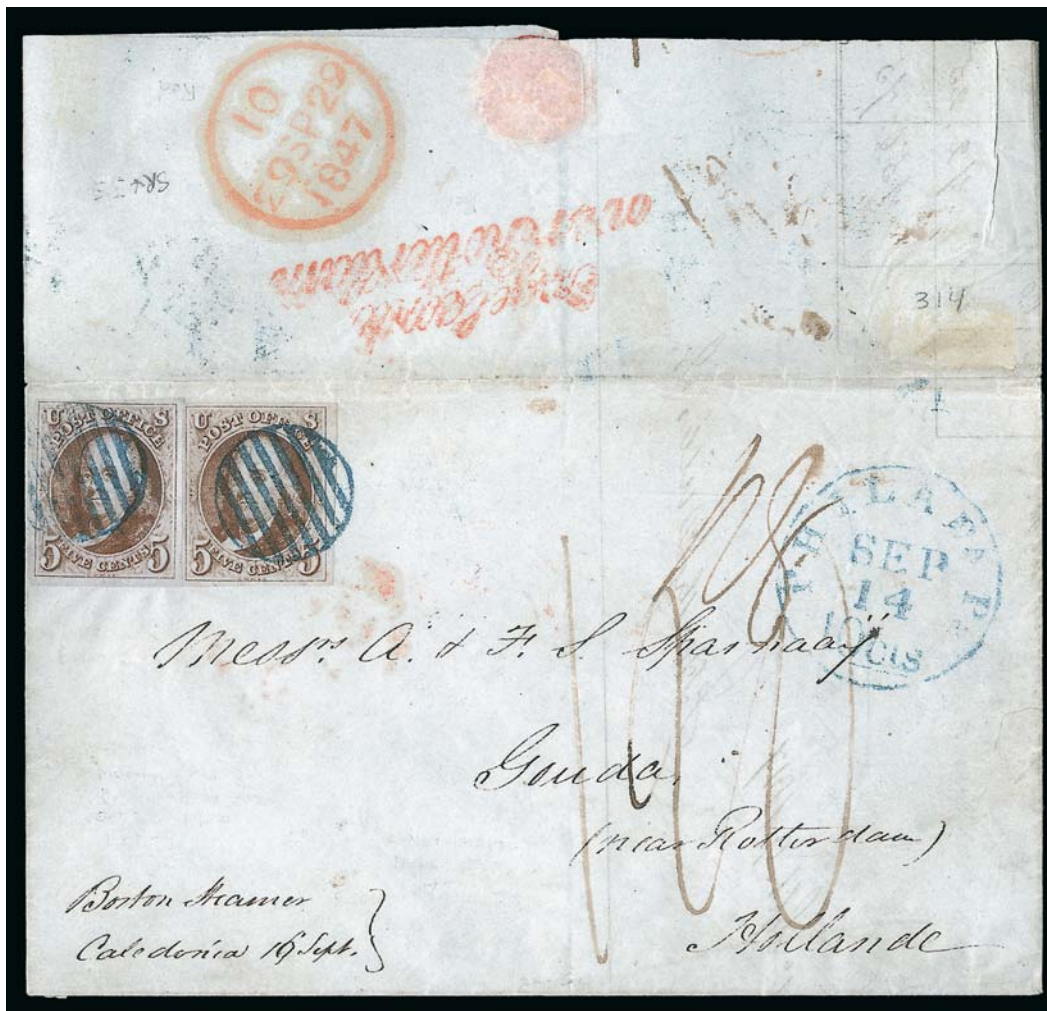 10
29SP29
1847
Engeland
over Rotterdam
314
U S
POST OFFICE
5 FIVE CENTS 5
U S
POST OFFICE
5 FIVE CENTS 5
PHILADA PA
SEP
14
10 cts
108
Messrs A. & F. S. Sparnaaÿ
Gouda,
(near Rotterdam)
Hollande
Boston Steamer
Caledonia 16 Sept.